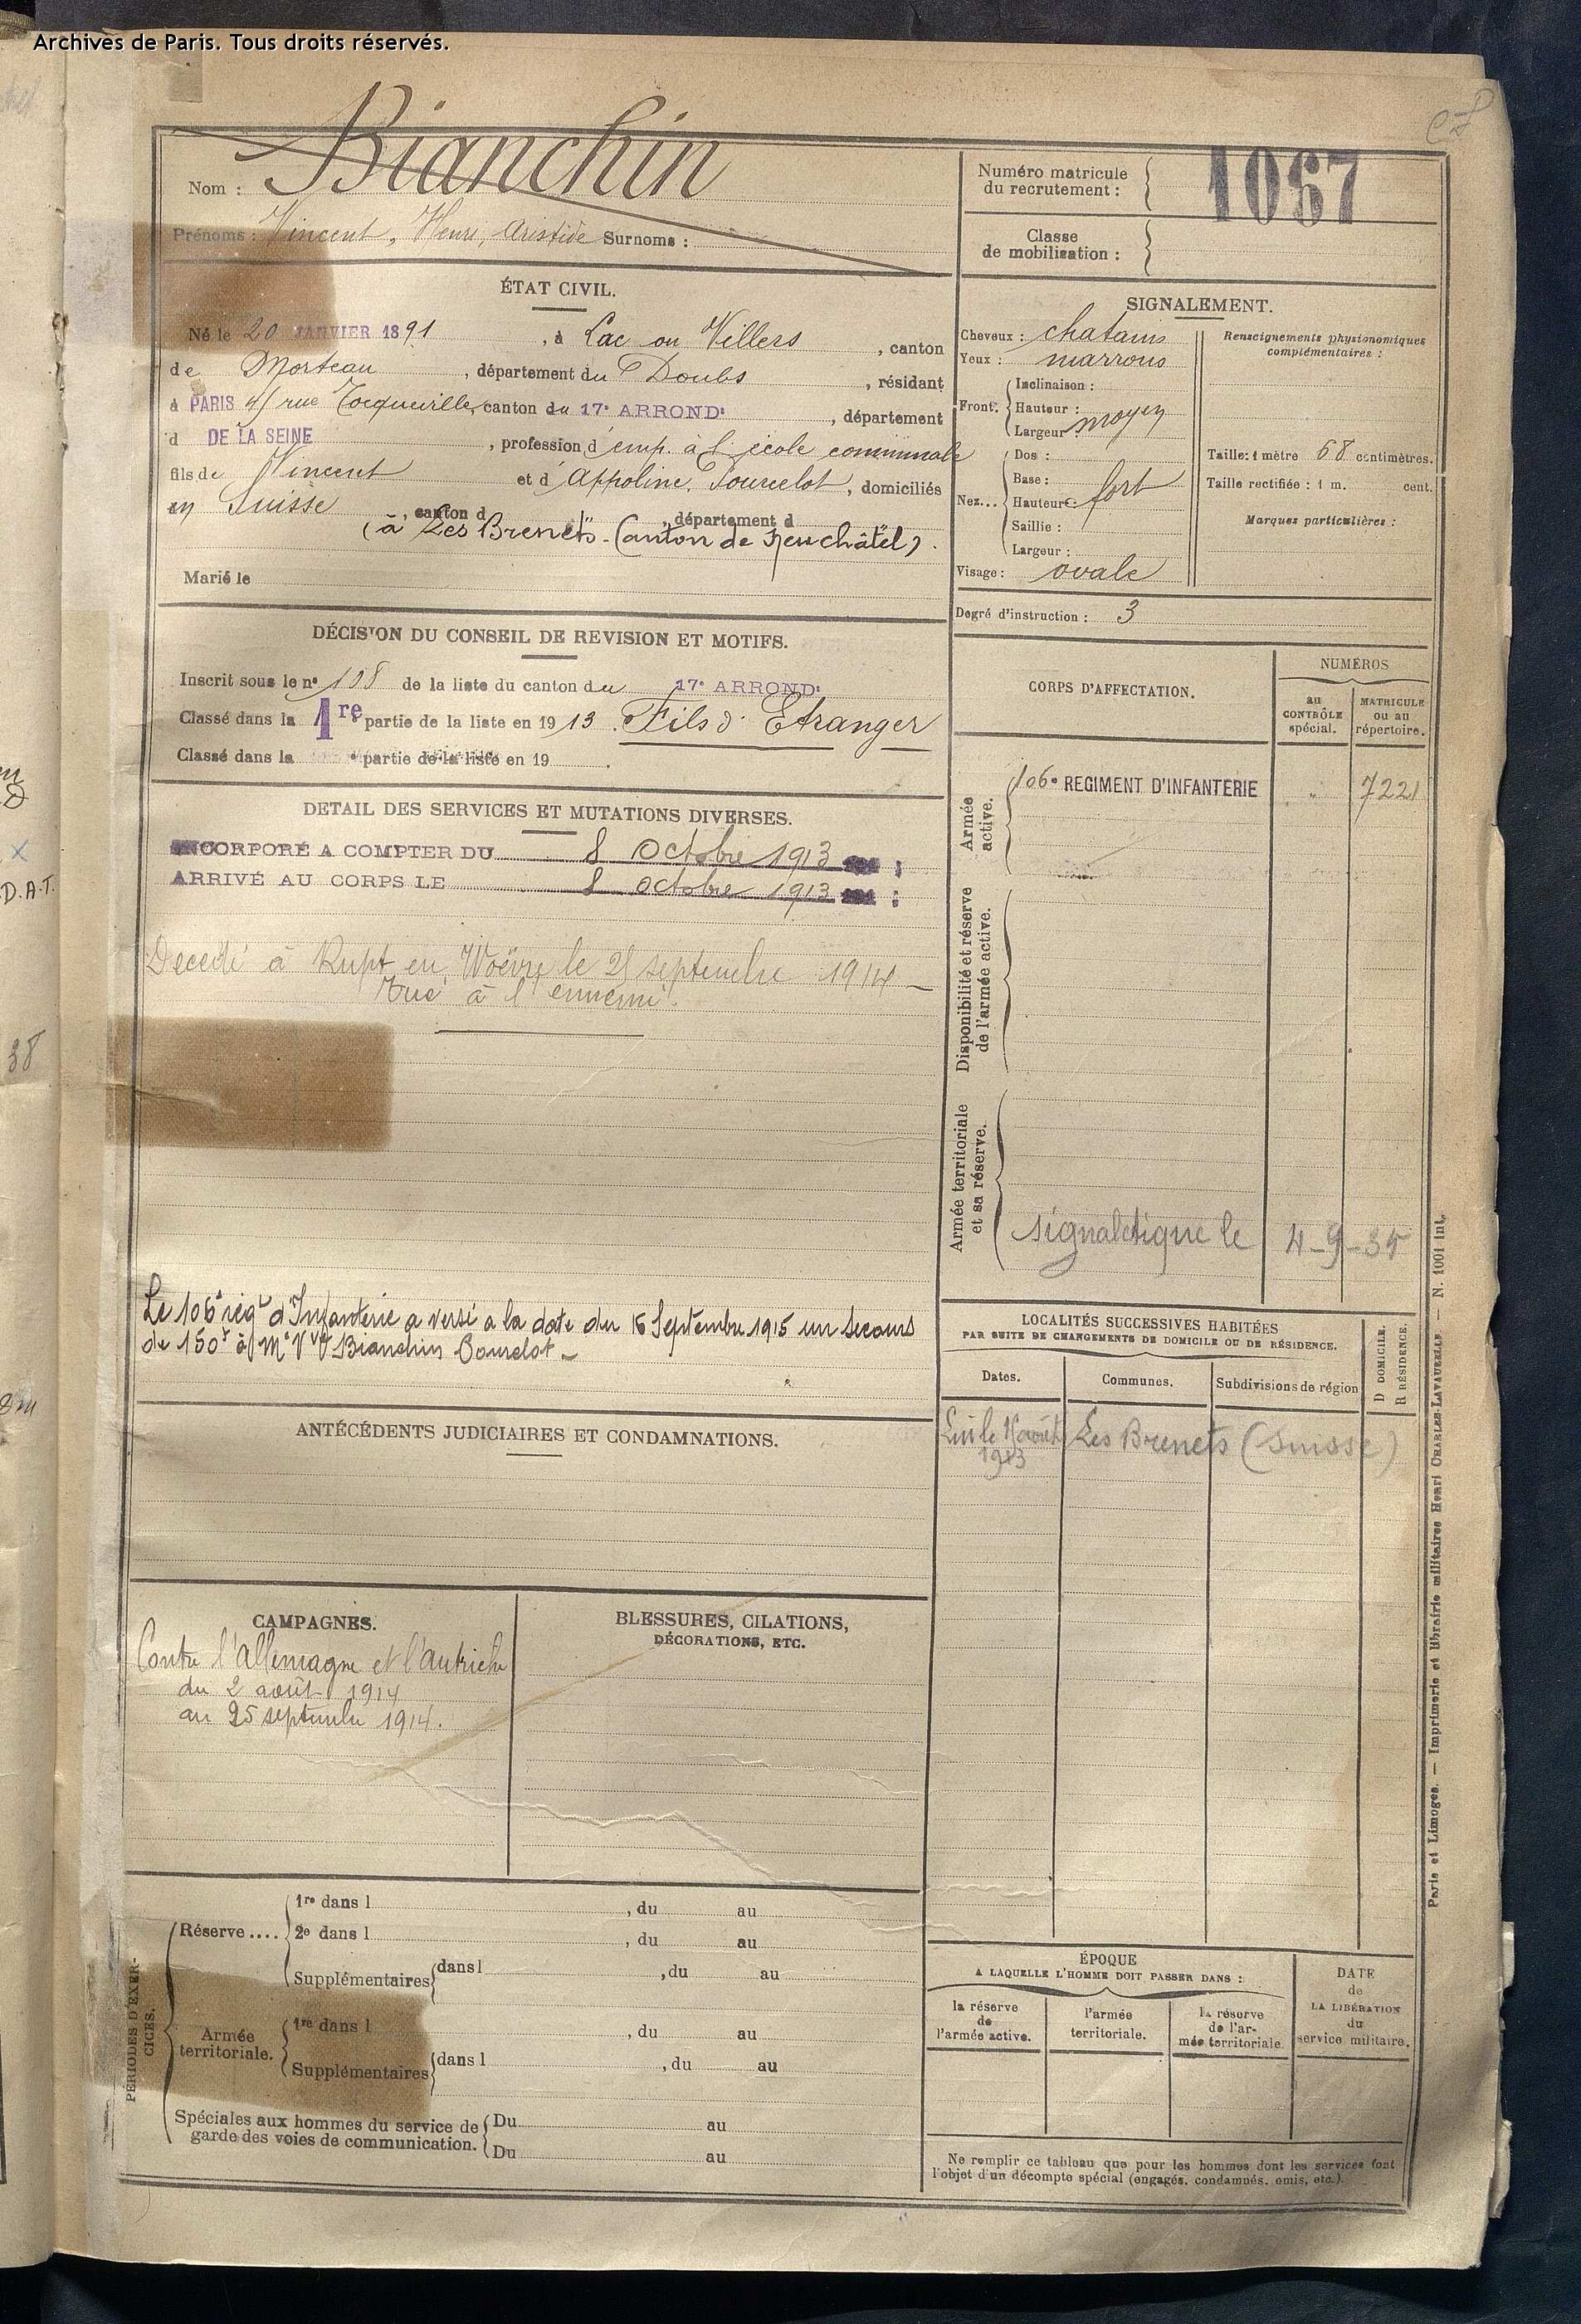 Archives de Paris. Tous droits réservés.
Nom : Bianchin
Prénoms : Vincent, Henri, Aristide Surnoms :
Numéro matricule
du recrutement : 1067
Classe
de mobilisation :
ÉTAT CIVIL.
Né le 20 JANVIER 1891, à Lac ou Villers, canton
de Morteau, département du Doubs, résidant
à PARIS rue Tocqueville, canton du 17e ARRONDt, département
d DE LA SEINE, profession d'emp. à l'école communale
fils de Vincent et d'Appoline Pourcelot, domiciliés
en Suisse, canton d département d
(à "Les Brenets" - Canton de Neuchâtel).
Marié le
SIGNALEMENT.
Cheveux : chatains
Yeux : marrons
Front. Inclinaison :
Hauteur :
Largeur : moyen
Nez... Dos :
Base :
Hauteur : fort
Saillie :
Largeur :
Visage : ovale
Renseignements physionomiques
complémentaires :
Taille : 1 mètre 68 centimètres.
Taille rectifiée : 1 m. cent.
Marques particulières :
Degré d'instruction : 3
DÉCISION DU CONSEIL DE REVISION ET MOTIFS.
Inscrit sous le n° 108 de la liste du canton du 17e ARRONDt
Classé dans la 1re partie de la liste en 1913. Fils d'Etranger
Classé dans la partie de la liste en 19 .
DETAIL DES SERVICES ET MUTATIONS DIVERSES.
INCORPORÉ A COMPTER DU 8 Octobre 1913 ;
ARRIVÉ AU CORPS LE 8 octobre 1913 ;
Decédé à Rupt en Woëvre le 25 septembre 1914 -
Tué à l'ennemi.
Le 106e régt d'Infanterie a versé a la date du 16 Septembre 1915 un secours
de 150f à Me Vve Bianchin Pourcelot -
CORPS D'AFFECTATION.
NUMÉROS
au
CONTRÔLE
spécial.
MATRICULE
ou au
répertoire.
Armée
active.
106e REGIMENT D'INFANTERIE " 7221
Disponibilité et réserve
de l'armée active.
Armée territoriale
et sa réserve.
signaletique le 4-9-35
LOCALITÉS SUCCESSIVES HABITÉES
PAR SUITE DE CHANGEMENTS DE DOMICILE OU DE RÉSIDENCE.
Dates. Communes. Subdivisions de région
D DOMICILE.
R RÉSIDENCE.
août Les Brenets (Suisse)
1913
ANTÉCÉDENTS JUDICIAIRES ET CONDAMNATIONS.
CAMPAGNES.
Contre l'allemagne et l'autriche
du 2 août 1914
au 25 septembre 1914.
BLESSURES, CITATIONS,
DÉCORATIONS, ETC.
PÉRIODES D'EXER-
CICES.
Réserve.... 1re dans l , du au
2e dans l , du au
Supplémentaires dans l , du au
Armée
territoriale. 1re dans l , du au
Supplémentaires dans l , du au
Spéciales aux hommes du service de
garde des voies de communication.
Du au
Du au
ÉPOQUE
A LAQUELLE L'HOMME DOIT PASSER DANS :
la réserve
de
l'armée active.
l'armée
territoriale.
la réserve
de l'ar-
mée territoriale.
DATE
de
LA LIBÉRATION
du
service militaire.
Ne remplir ce tableau que pour les hommes dont les services font
l'objet d'un décompte spécial (engagés, condamnés, omis, etc.).
Paris et Limoges. — Imprimerie et librairie militaires Henri CHARLES-LAVAUZELLE — N. 1001 int.
D.A.T.
38